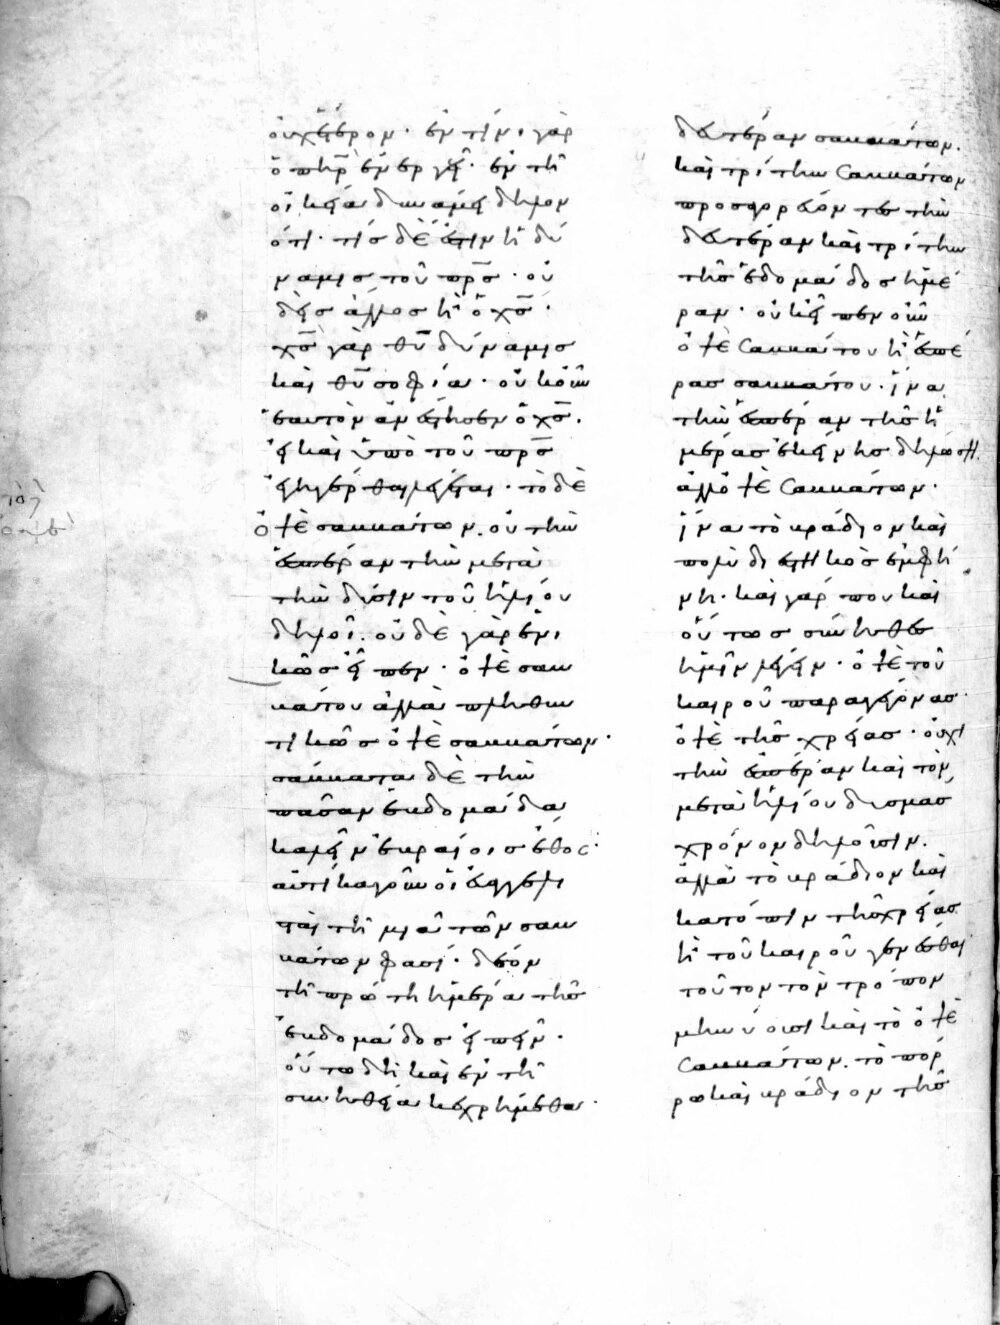 οὐχ ἕτερον· ἐν τίνι γὰρ
ὁ πηρ ἐνεργεῖ· ἐν τῆ
οἰκεία δυνάμει δῆλον
ὅτι· τίσ δὲ ἐστιν ἡ δύ
ναμισ τοῦ πρσ· οὐ
δεὶσ ἄλλοσ ἢ ὁ χσ·
χσ γὰρ θυ δύναμισ
καὶ θυ σοφία· οὐκοῦν
ἑαυτὸν ἀνέστησεν ὁ χσ·
εἰ καὶ ὑπὸ τοῦ πρσ
ἐγηγέρθαι λέγεται· τὸ δὲ
ὀψὲ σαββάτων· οὐ τὴν
ἑσπέραν τὴν μετὰ
τὴν δύσιν τοῦ ἡλίου
δηλοῖ· οὐδὲ γὰρ ἑνι
κῶσ εἶπεν· ὀψὲ σαβ
βάτου ἀλλὰ πληθυν
τικῶσ ὀψὲ σαββάτων·
σάββατα δὲ τὴν
πᾶσαν ἑβδομάδα
καλεῖν ἑβραίοισ ἔθος·
αὐτίκα γοῦν οἱ εὐαγγελι
σταὶ τῆ μιᾶ τῶν σαβ
βάτων φασί· δέον
τῆ πρώτη ἡμέρα τῆσ
ἑβδομάδοσ εἰπεῖν·
οὕτω δὴ καὶ ἐν τῆ
συνηθεία κεχρήμεθα·
δευτέραν σαββάτων·
καὶ τρίτην σαββάτων
προσαγορεύοντεσ τὴν
δευτέραν καὶ τρίτην
τῆσ ἑβδομάδοσ ἡμέ
ραν· οὐκ εἶπεν οὖν
ὀψὲ σαββάτου ἢ ἑσπέ
ρασ σαββάτου· ἵνα
τὴν ἑσπέραν τῆσ ἡ
μέρασ ἐκείνησ δηλώση·
ἀλλ' ὀψὲ σαββάτων·
ἵνα τὸ βράδιον καὶ
πολὺ διεστηκὸσ ἐμφή
νη· καὶ γάρ που καὶ
οὕτωσ σύνηθεσ
ἡμῖν λέγειν· ὀψὲ τοῦ
καιροῦ παραγέγονασ·
ὀψὲ τῆσ χρείασ· οὐχὶ
τὴν ἑσπέραν καὶ τὸν
μετὰ ἡλίου δυσμὰσ
χρόνον δηλοῦσιν·
ἀλλὰ τὸ βράδιον καὶ
κατόπιν τῆσ χρείασ
ἢ τοῦ καιροῦ γενέσθαι
τοῦτον τὸν τρόπον
μηνύουσι καὶ τὸ ὀψὲ
σαββάτων· τὸ πόρ
ρω καὶ βράδιον τῆσ